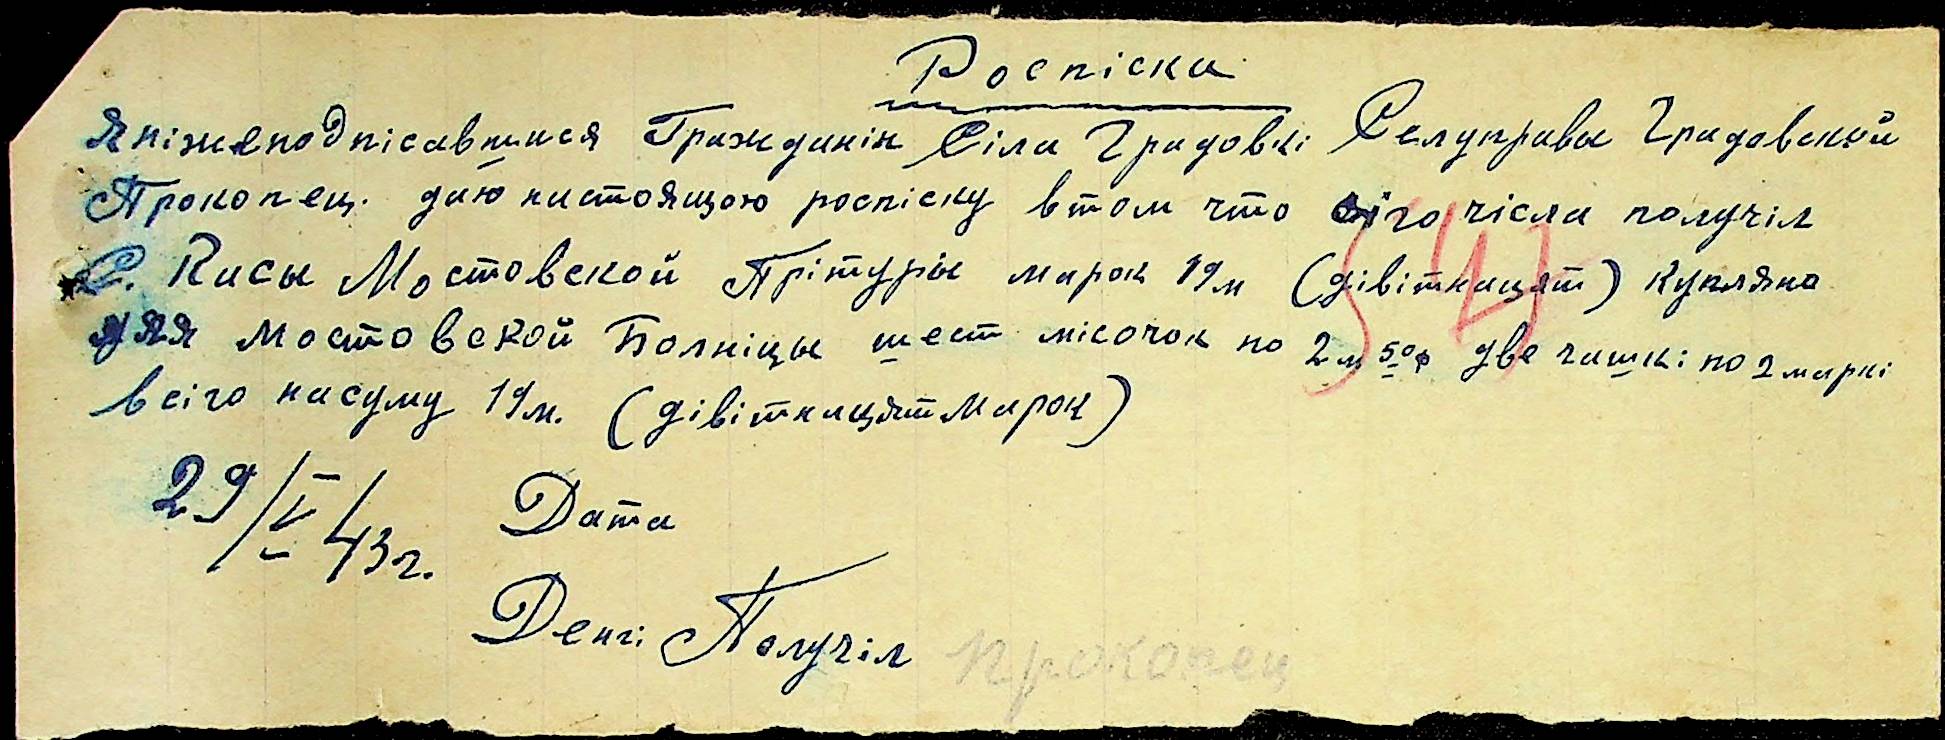 Роспіска
Я ніжеподпісавшися Гражданін Сіла Градовкі Селуправы Градовской
Прокопец. даю настоящою роспіску втом что сіго чісла получіл
С. Касы Мостовской Прітуры марок 19м (дівітнацят) Купляно
для Мостовской Болніцы шест місочок по 2м 50ф две чашкі по 2 маркі
всіго насуму 19м. (дівітнацят Марок)
29/V/43г. Дата
Денгі Получіл Прокопец